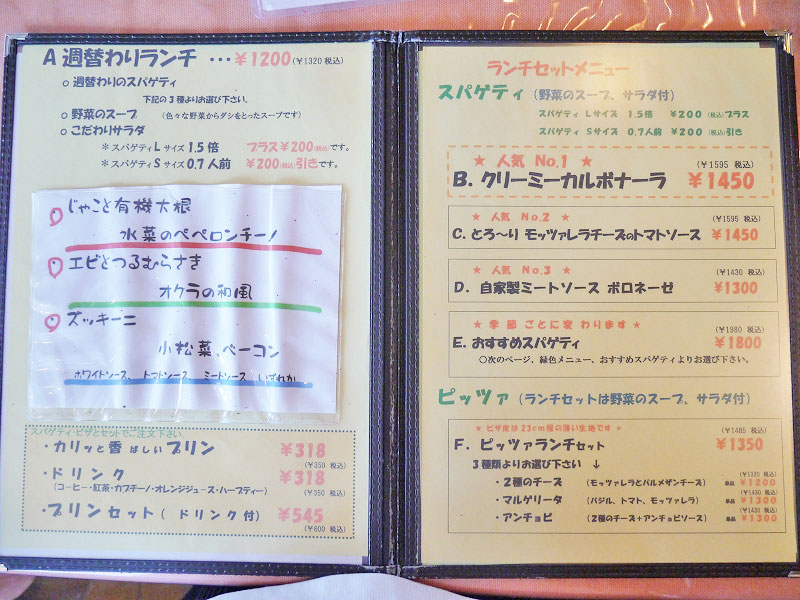 A 週替わりランチ ・・・￥1200(￥1320 税込)
○ 週替わりのスパゲティ
下記の3種よりお選び下さい。
○ 野菜のスープ （色々な野菜からダシをとったスープです）
○ こだわりサラダ
＊スパゲティL サイズ 1.5 倍 プラス￥200(税込)です。
＊スパゲティS サイズ 0.7 人前 ￥200(税込)引きです。
じゃこと有機大根
水菜のペペロンチーノ
エビとつるむらさき
オクラの和風
ズッキーニ
小松菜、ベーコン
ホワイトソース、トマトソース ミートソース いずれか
スパゲティ・ピザとセットでご注文下さい
・カリッと香 ばしいプリン ￥318
(￥350 税込)
・ドリンク ￥318
(コーヒー・紅茶・カプチーノ・オレンジジュース・ハーブティー) (￥350 税込)
・プリンセット( ドリンク付) ￥545
(￥600 税込)
ランチセットメニュー
スパゲティ（野菜のスープ、サラダ付）
スパゲティ Lサイズ 1.5倍 ￥200 (税込)プラス
スパゲティ Sサイズ 0.7人前 ￥200 (税込)引き
★ 人気 No.1 ★ (￥1595 税込)
B. クリーミーカルボナーラ ￥1450
★ 人気 No.2 ★ (￥1595 税込)
C. とろ～り モッツァレラチーズのトマトソース ￥1450
★ 人気 No.3 ★ (￥1430 税込)
D. 自家製ミートソース ボロネーゼ ￥1300
★ 季 節 ごとに変 わります ★ (￥1980 税込)
E. おすすめスパゲティ ￥1800
○次のページ、緑色メニュー、おすすめスパゲティよりお選び下さい。
ピッツァ（ランチセットは野菜のスープ、サラダ付）
★ ピザ皮は 23cm 程の薄い生地です ★ (￥1485 税込)
F. ピッツァランチセット ￥1350
3 種類よりお選び下さい ↓
(￥1320 税込)
・2種のチーズ （モッツァレラとパルメザンチーズ） 単品 ￥1200
(￥1430 税込)
・マルゲリータ （バジル、トマト、モッツァレラ） 単品 ￥1300
(￥1430 税込)
・アンチョビ （2種のチーズ＋アンチョビソース） 単品 ￥1300